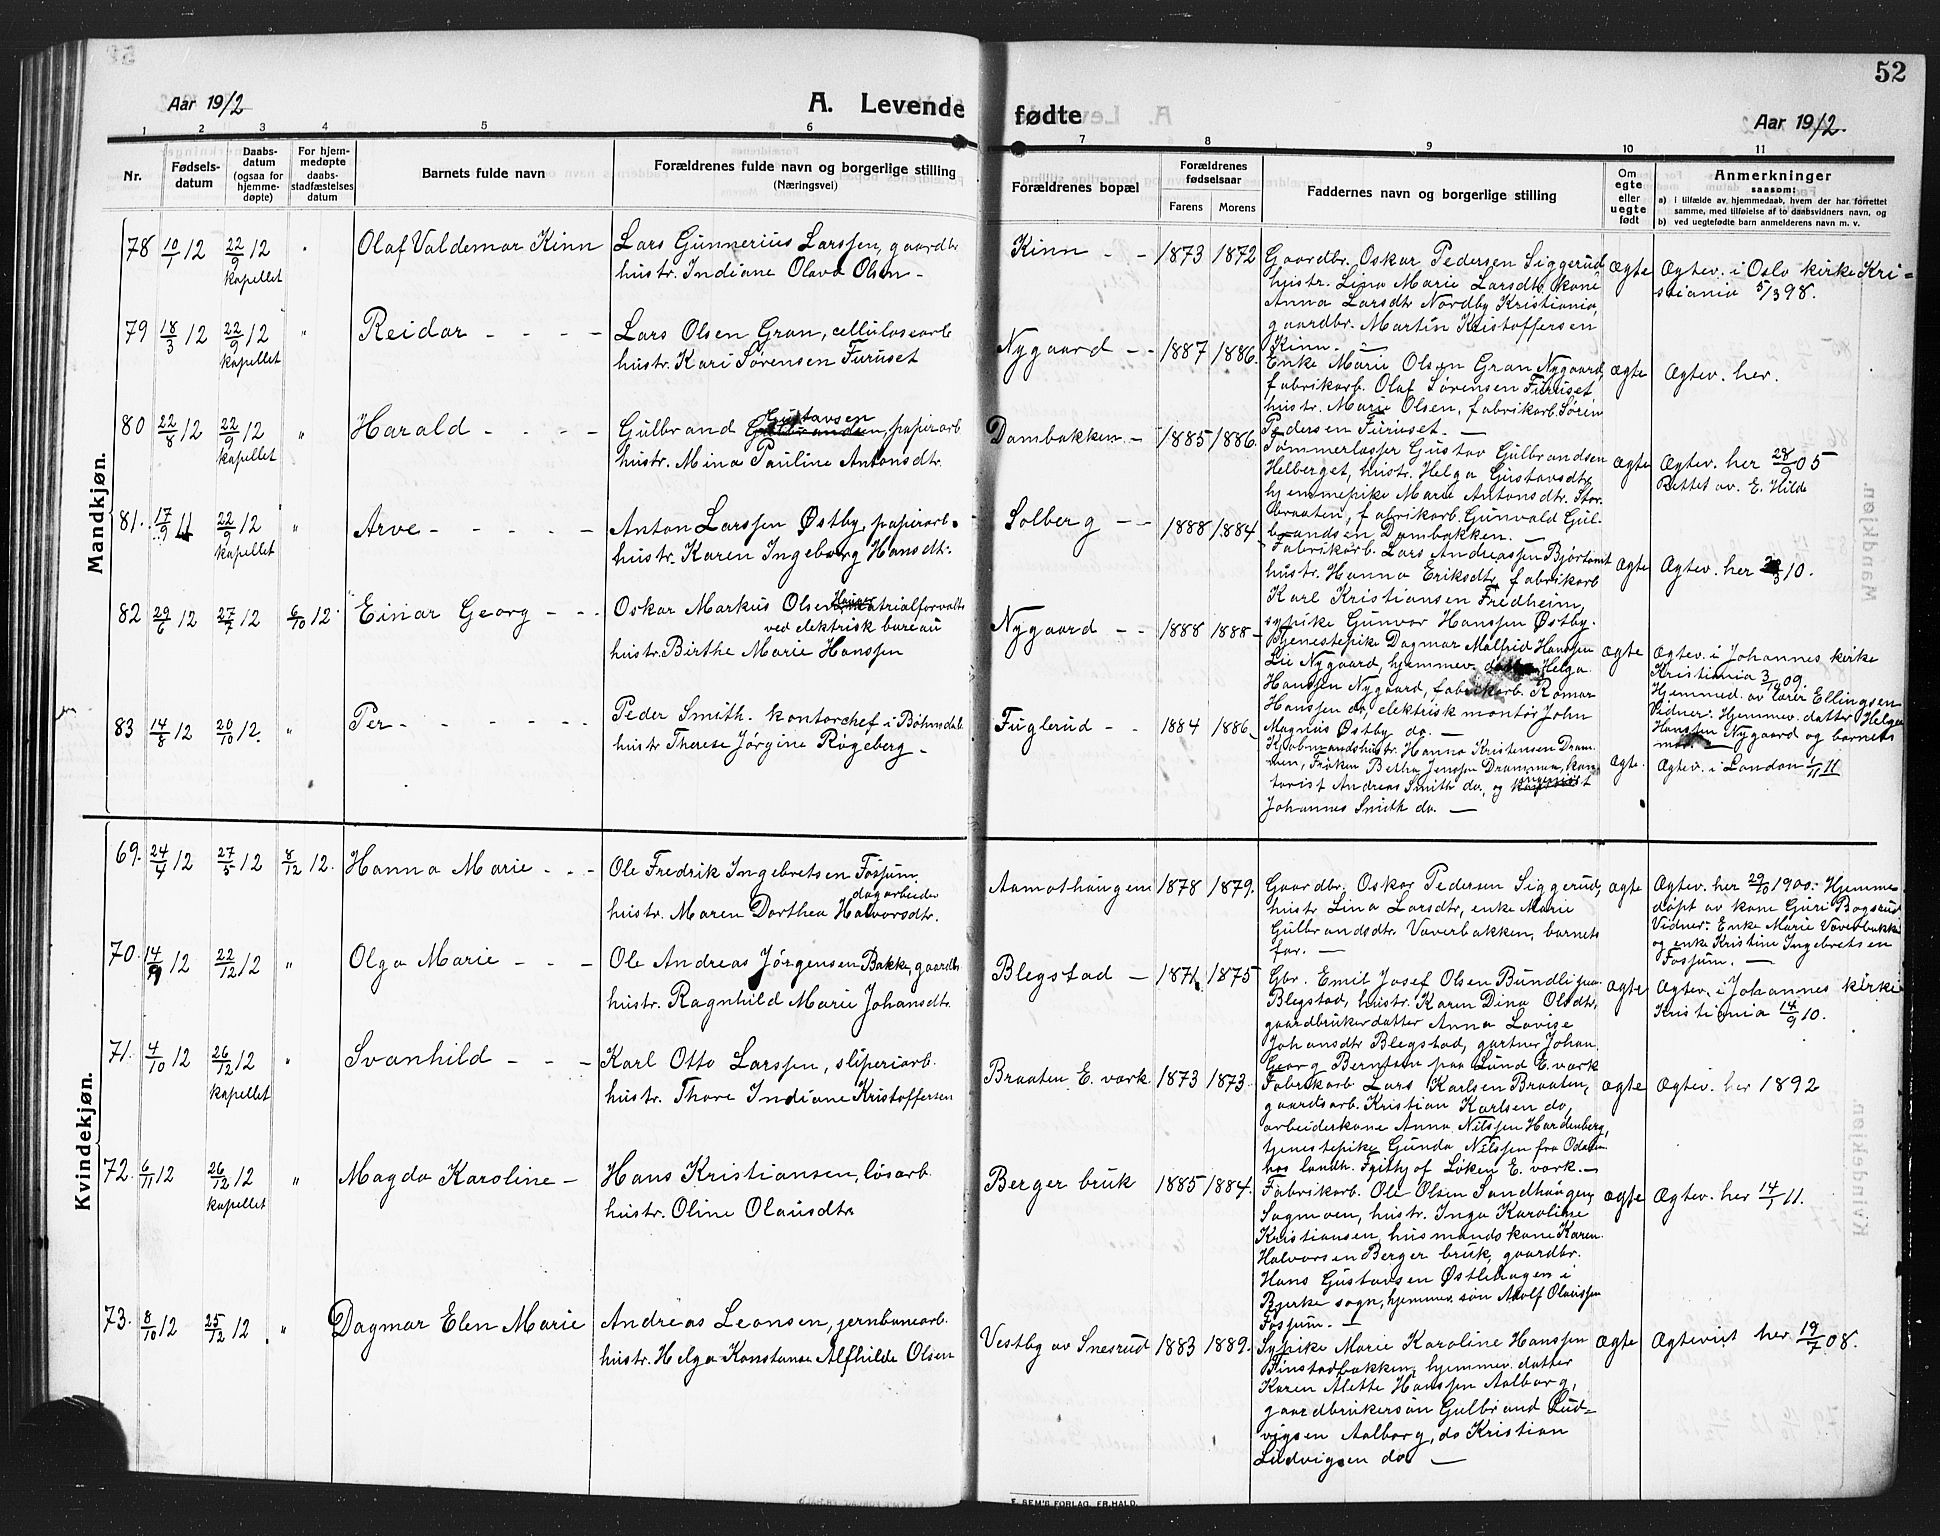 52
Aar 1912
A. Levende fødte
Aar 1912.
1 2 3 4 5 6 7 8 9 10 11
Nr.
Fødsels-
datum
Daabs-
datum
(ogsaa for
hjemme-
døpte)
For hjem-
medøpte
daabs-
stadfæstelses
datum
Barnets fulde navn
Forældrenes fulde navn og borgerlige stilling
(Næringsvei)
Forældrenes bopæl
Forældrenes
fødselsaar
Farens Morens
Faddernes navn og borgerlige stilling
Om
egte
eller
uegte
født
Anmerkninger
saasom:
a) i tilfælde av hjemmedaab, hvem der har forrettet
samme, med tilføielse af to daabsvidners navn, og
b) ved uegtefødte barn anmelderens navn m. v.
Mandkjøn.
78 10/1 12 22/9 12 " Olaf Valdemar Kinn
kapellet
Lars Gunnerius Larssen, gaardbr.
hustr. Indiane Olava Olsen -
Kinn - - 1873 1872
Gaardbr. Oskar Pedersen Siggerud,
hustr. Lina Marie Larsdtr. kone
Anna Larsdtr Nordby Kristiania,
gaardbr. Martin Kristoffersen
Kinn. -
Ægte
Ægtev. i Oslo kirke Kri-
stiania 5/3 98.
79 18/3 12 22/9 12 " Reidar - - - -
kapellet
Lars Olsen Gran, cellulosearb
hustr. Kari Sørensen Furuset
Nygaard - - 1887 1886.
Enke Marie Olsen Gran Nygaard,
fabrikarb. Olaf Sørensen Furuset
hustr. Marie Olsen, fabrikarb. Søren
Pedersen Furuset. -
Ægte
Ægtev. her.
80 22/8 12 22/9 12 " Harald - - - -
kapellet
Gustavsen
Gulbrand Gulbrandsen, papirarb
hustr. Mina Pauline Antonsdtr.
Dambakken - 1885 1886.
Tømmerløsser Gustav Gulbrandsen
Helberget, hustr. Helga Gustavsdtr,
hjemmepike Marie Antonsdtr. Stor-
braaten, fabrikarb. Gunvald Gul-
brandsen Dambakken. -
Ægte
Ægtev. her 28/9 05
Rettet av. E. Hilde
81. 17/9 11 22/9 12 " Arve - - - - -
kapellet
Anton Larssen Østby, papirarb.
hustr. Karen Ingeborg Hansdtr.
Solberg - - 1888 1884
Fabrikarb. Lars Andreassen Bjørtomt
hustr. Hanna Eriksdtr, fabrikarb
Karl Kristiansen Fredheim,
sypike Gunvor Hanssen Østby.
Ægte
Ægtev. her 10.
82 29/6 12 27/7 12 6/10 12. Einar Georg - - -
Oskar Markus Olsen matrialforvalts
ved elektrisk bureau
hustr. Birthe Marie Hanssen
Nygaard - - 1888 1888
Tjenestepike Dagmar Malfrid Hanssen
Lie Nygaard, hjemmev. datter Helga
Hanssen Nygaard, fabrikarb. Romar
Hanssen do, elektrisk montør John
Magnus Østby do. -
Ægte
Ægtev. i Johannes kirke
Kristiania 3/10 09.
Hjemmed. av lærer Ellingsen
Vidner: Hjemmev. datter Helga
Hanssen Nygaard og barnets
mor.
83 14/8 12 20/10 12. " Per - - - - - -
Peder Smith. kontorchef i Bøhnsdal
hustr Therese Jørgine Rogeberg -
Fuglerud - - 1884 1886
Kjøbmandshustr. Hanna Kristensen Dram-
men, Frøken Betha Jenssen Drammen, kon-
torist Andreas Smith do, og ingeniør
Johannes Smith do. -
Ægte.
Ægtev. i London 1/11 11
Kvindekjøn.
69. 24/4 12 27/5 12 8/12 12. Hanna Marie - - -
Ole Fredrik Ingebretsen Fossum
dagarbeider
hustr. Maren Dorthea Halvorsdtr.
Aamothaugen 1878 1879.
Gaardbr. Oskar Pedersen Siggerud,
hustr Lina Larsdtr, enke Marie
Gulbrandsdtr. Væverbakken, barnets
far. -
Ægte
Ægtev. her 29/10 1900. Hjemme
døpt av kone Guri Bogsrud
Vidner: Enke Marie Væverbakke
og enke Kristine Ingebretsen
Fossum. -
70. 14/9 12 22/12 12 " Olga Marie - - -
Ole Andreas Jørgensen Bakke, gaardbr.
hustr. Ragnhild Marie Johansdtr.
Blegstad - 1871. 1875
Gbr. Emil Josef Olsen Bundli paa
Blegstad, hustr. Karen Dina Olsdtr,
gaardbrukerdatter Anna Lovise
Johansdtr Blegstad, gartner Johan
Georg Berntsen paa Lund E. værk
Ægte
Ægtev. i Johannes kirke
Kristiania 14/9 10.
71. 4/10 12 26/12 12 " Svanhild - - -
kapellet
Karl Otto Larssen, sliperiarb.
hustr. Thora Indiane Kristoffersen
Braaten E. værk 1873 1873.
Fabrikarb Lars Karlsen Braaten,
gaardsarb. Kristian Karlsen do,
arbeiderkone Anna Nilssen Hardenberg,
tjenestepike Gunda Nilssen fra Odalen
hos landh. Frithjof Løken E. værk. -
Ægte
Ægtev. her 1892
72. 6/11 12 26/12 12 " Magda Karoline -
kapellet
Hans Kristiansen, løsarb.
hustr. Oline Olausdtr
Berger bruk 1885 1884.
Fabrikarb. Ole Olsen Sandhaugen,
Sagmoen, hustr. Inga Karoline
Kristiansen, husmandskone Karen
Halvorsen Berger bruk, gaardbr.
Hans Gustavsen Østlihagen i
Bjerke sogn, hjemmev. søn Adolf Olaussen
Fossum. -
Ægte
Ægtev. her 14/1 11.
73. 8/10 12 25/12 12. " Dagmar Elen Marie
Andreas Leonsen, jernbanearb.
hustr. Helga Konstanse Alfhilde Olsen
Vestby av Snesrud 1883 1889.
Sypike Marie Karoline Hanssen
Finstadbakken, hjemmev. datter
Karen Alette Hanssen Aalborg,
gaardbrukersøn Gulbrand Lud-
vigsen Aalborg, do Kristian
Ludvigsen do -
Ægte
Ægteviet her 19/7 08.
E. SEM'S FORLAG, FR.HALD.